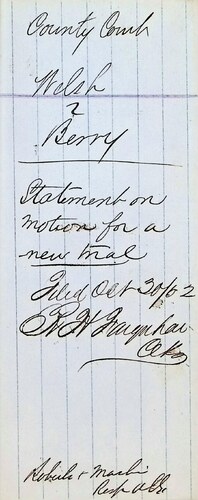 County Court
Welsh
v
Berry
Statement on
motion for a
new trial
Filed Oct 30/62
R H Farquhar
Clk
Roberts &
Resp Atty